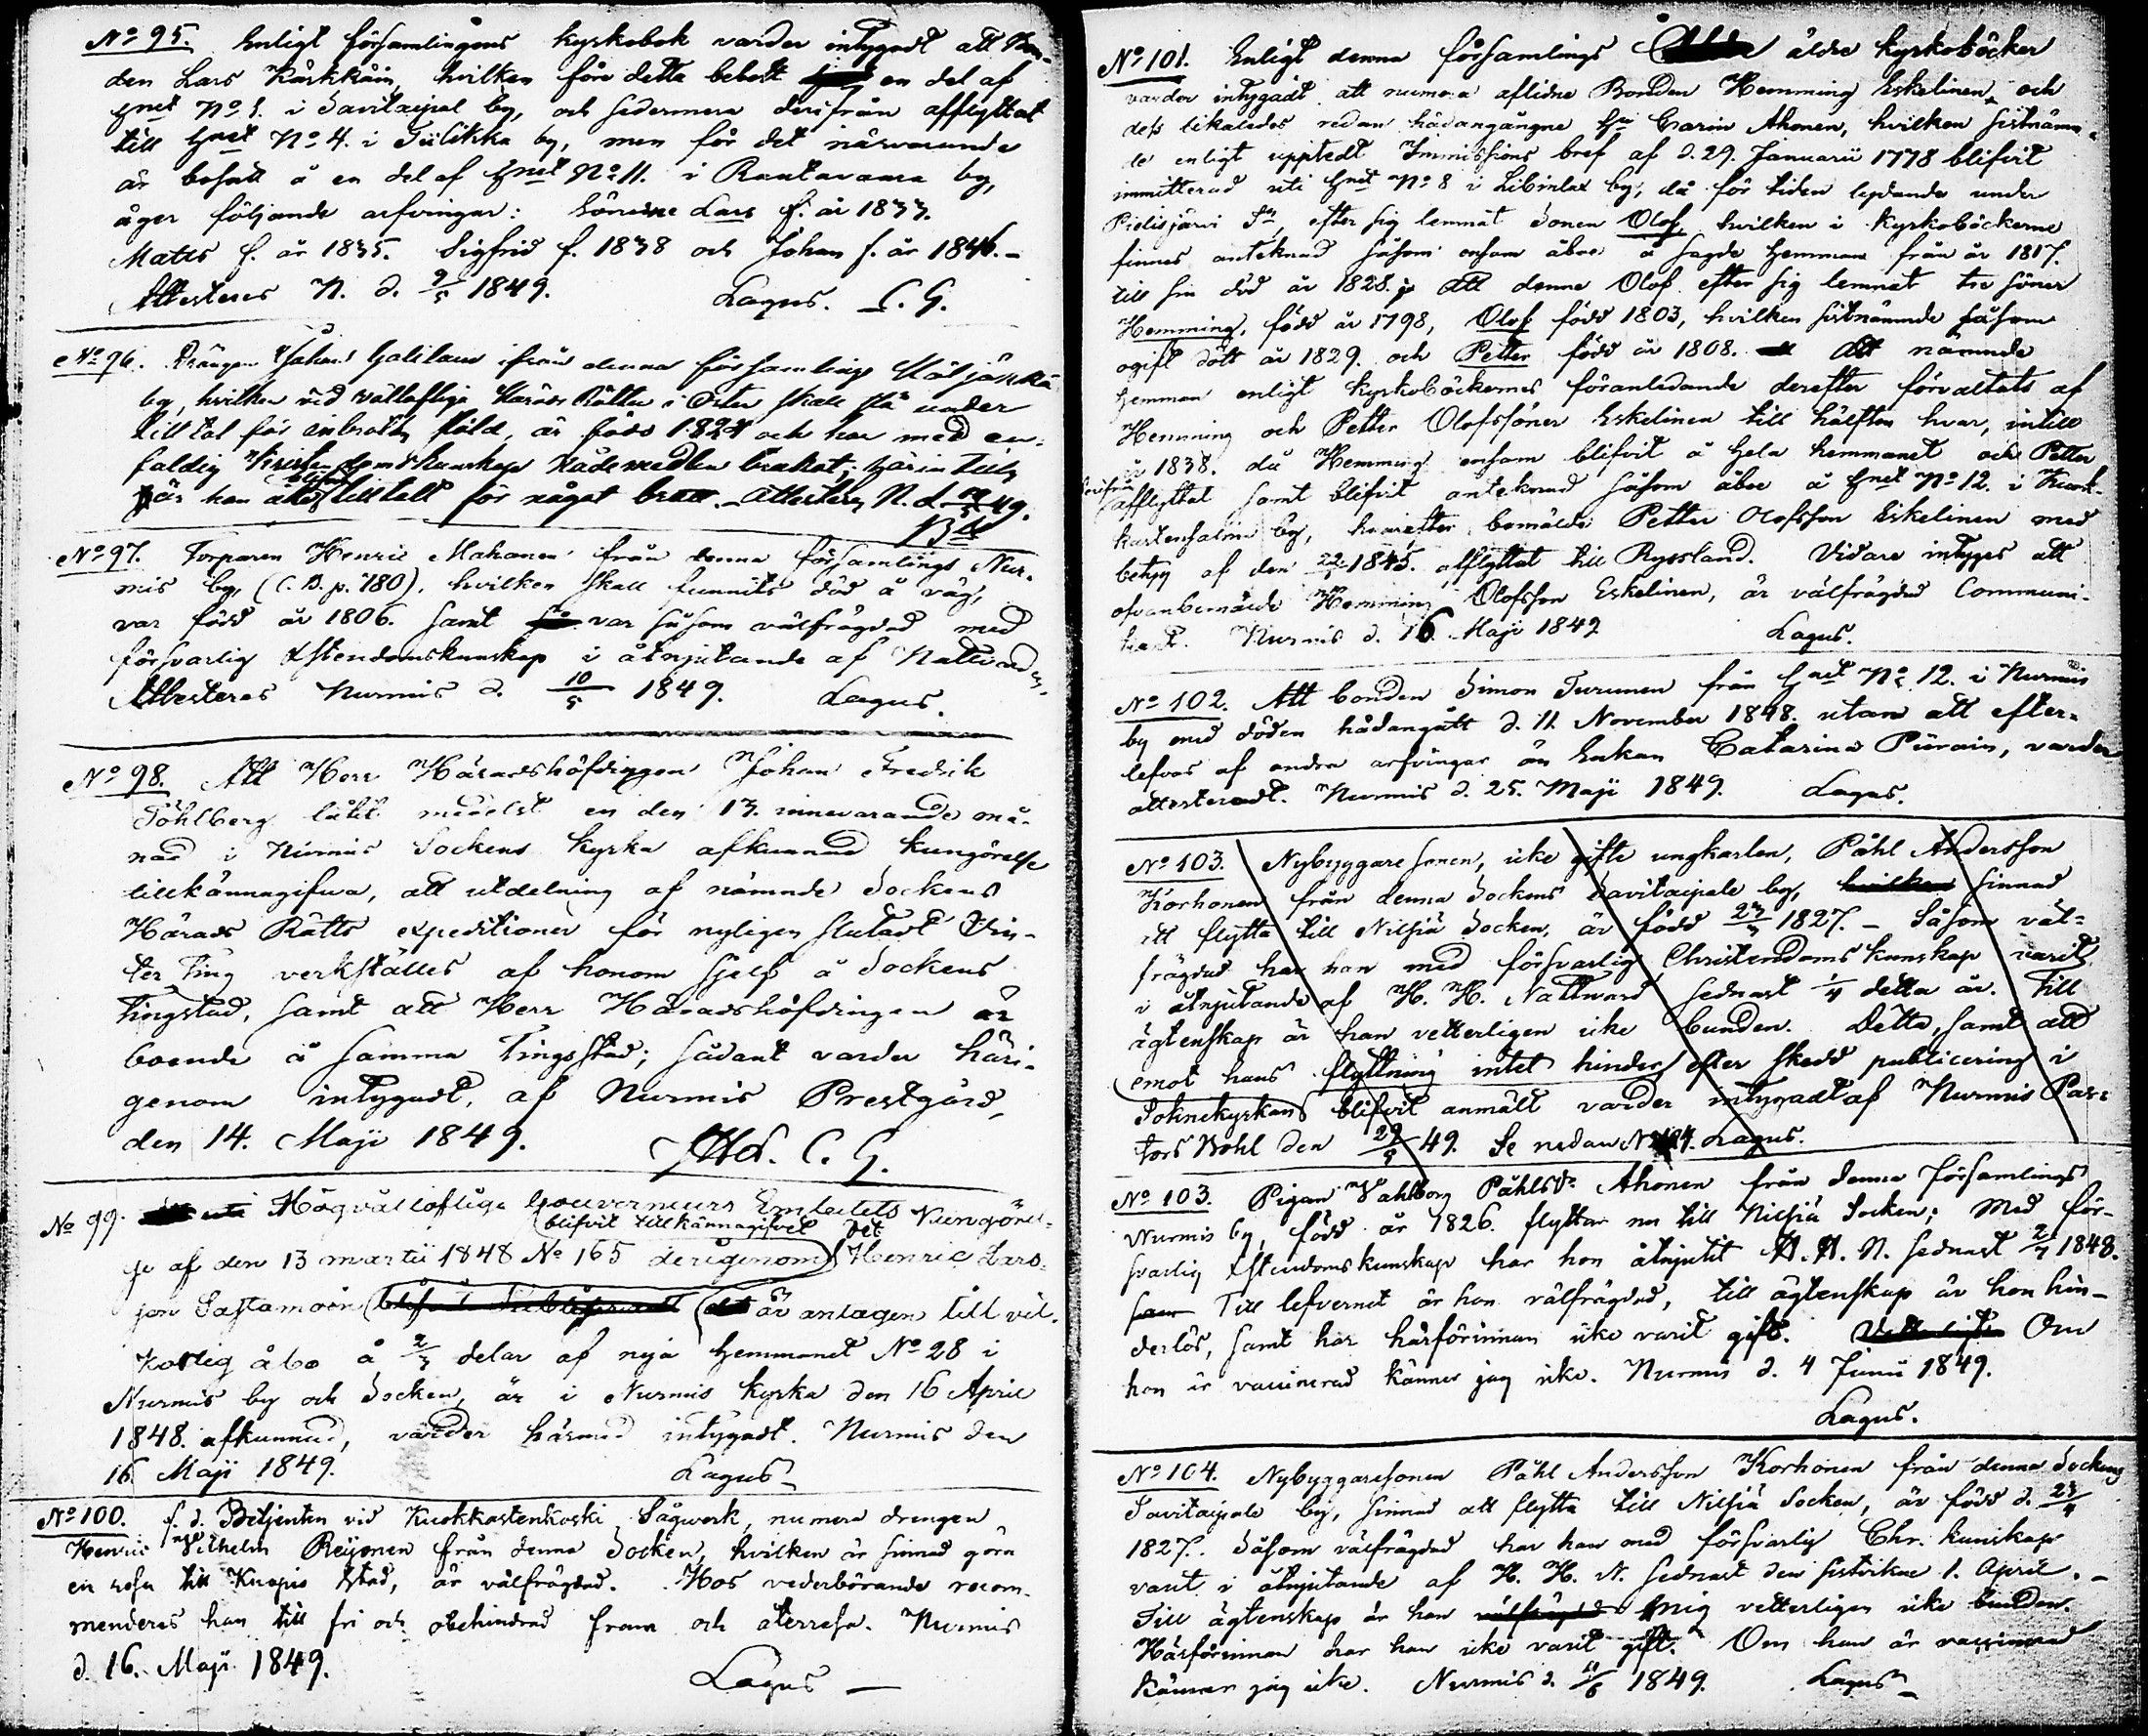 No 95. Enligt församlingens kyrkobok varder intygadt att Bon-
den Lars Kärkkäin, hvilken före detta bebott en del af
Hnet No 1. i Savitaipal by, och sedermera derifrån afflyttat
till Hnet No 4. i by, men för det närvarande
är bosatt å en del af Hnet No 11. i Rautavaara by,
äger följande arfvingar: Sönerne Lars f. år 1833.
Matts f. år 1835. Sigfrid f. 1838 och Johan f. år 1846. -
Attesteras N. d. 9/5 1849. Lagus. C. G.
No 96. Drängen Johan ifrån denna församlings
by, hvilken vid vällofliga Härads Rätten i Öster skall stå under
tilltal för inbrotts stöld, är född 1824 och har med en-
faldig Kristendomskunskap nådemedlen brukat; härintills
är han blifvit tilltalt för något brott. Attesteras N. d. 49.
No 97. Torparen Henric Mahonen från denna församlings Nur-
mis by, (C. B. p. 780), hvilken skall funnits död å väg,
var född år 1806. samt var såsom välfrägdad med
försvarlig Xstendomskunskap i åtnjutande af Nattvarden.
Attesteras Nurmis d. 10/5 1849. Lagus.
No 98. Att Herr Häradshöfdingen Johan Fredrik
låtit medelst en den 13. innevarande må-
nad i Nurmis Sockens kyrka afkunnad kungörelse
tillkännagifva, att utdelning af nämnde Sockens
Härads Rätts expeditioner för nyligen slutadt Vin-
ter Ting verkställes af honom sjelf å Sockens
Tingstad, samt att Herr Häradshöfdingen är
boende å samma Tingsstad; sådant varder häri-
genom intygadt, af Nurmis Prestgård,
den 14. Maji 1849. C. G.
No 99. Högvällofliga Gouverneurs Embetets Kungörel-
blifvit tillkännagifvet det
se af den 13 martii 1848 No 165 derigenom Henric Lars-
son Sastamoin är antagen till vil-
korlig åbo å 2/3 delar af nya Hemmanet No 28 i
Nurmis by och Socken, är i Nurmis kyrka den 16 April
1848. afkunnad, varder härmed intygadt. Nurmis den
16 Maji 1849. Lagus
No 100. f. d. Betjenten vid Kuokkastenkoski Sågwerk, numera drengen
Henric Wilhelm Reijonen från denna Socken, hvilken är sinnad göra
en resa till Kuopio stad, är välfrägdad. Hos vederbörande recom-
menderas han till fri och obehindrad fram och återresa. Nurmis
d. 16. Maji 1849. Lagus
No 101. Enligt denna församlings äldre kyrkoböcker
varder intygadt att numera aflidne Bonden Hemming Eskelinen, och
dess likaledes redan hädangångne Hu Carin Ahonen, hvilken sistnämn-
de enligt uppvedt Immissions bref af d. 29. Januarii 1778 blifvit
immitterad uti Hnet No 8 i Libinlax by, då för tiden lydande under
Pielisjärvi Sn, efter sig lemnat Sonen Olof, hvilken i kyrkoböckerne
finnes antecknad såsom ensam åboe å sagde Hemman från år 1817.
till sin död år 1828. Att denne Olof efter sig lemnat tre söner
Hemming, född år 1798, Olof född 1803, hvilken sistnämnde såsom
ogift dött år 1829. och Petter född år 1808. Att nämnde
Hemman enligt kyrkoböckernes föranledande derefter förvaltats af
Hemming och Petter Olofssöner Eskelinen till hälften hvar, intill
år 1838. då Hemming ensam blifvit å hela hemmanet och Petter
derifrån afflyttat samt blifvit antecknad såsom åboe å Hnet No 12. i Kuok-
kastensalmi by, hvarefter bemälde Petter Olofsson Eskelinen med
betyg af den 1845. afflyttat till Ryssland. Vidare intygas att
ofvanbemälde Hemming Olofsson Eskelinen, är välfrägdad Communi-
kant. Nurmis d. 16 Maji 1849 Lagus.
No 102. Att bonden Simon Turunen från Hnet No 12. i Nurmis
by med döden hådangått d. 11. November 1848. utan att efter-
lefvas af andra arfvingar än Enkan Catarina Piirain, varder
attesteradt. Nurmis d. 25. Maji 1849. Lagus.
No 103. Nybyggare sonen, icke gifte ungkarlen, Påhl Andersson
Korhonen från denna Sockens Savitaipale by, hvilken sinnad
att flytta till Nilsiä Socken, är född 23/4 1827. - Såsom väl-
frägdad har han med försvarlig Christendoms kunskap varit
i åtnjutande af H. H. Nattvard sednast 1/4 detta år. Till
ägtenskap är han vetterligen icke bunden. Detta, samt att
emot hans flyttning intet hinder efter skedd publicering i
Sohnekyrkan blifvit anmält varder intygadt af Nurmis Pas-
tors Bohl den 29/5 49. Se nedan No 104. Lagus.
No 103. Pigan Wahlborg Påhlsdr Ahonen från denna församlings
Nurmis by, född år 1826. flyttar nu till Nilsiä Socken; Med för-
svarlig Xstendoms kunskap har hon åtnjutit H. H. N. sednast 2/7 1848.
Till lefvernet är hon välfrägdad, till ägtenskap är hon hin-
derlös, samt har härförinnan icke varit gift. Om
hon är vaccinerad känner jag icke. Nurmis d. 4 Junii 1849.
Lagus.
No 104. Nybyggaresonen Påhl Andersson Korhonen från denna Sockens
Savitaipale by, sinnad att flytta till Nilsiä Socken, är född d. 23/4
1827. Såsom välfrägdad har han med försvarlig Chr. kunskap
varit i åtnjutande af H. H. N. sednast den sistvikne 1. April. -
Till ägtenskap är han välfrägdad mig vetterligen icke bunden.
Härförinnan har han icke varit gift. Om han är vaccinerad
känner jag icke. Nurmis d. 11/6 1849. Lagus